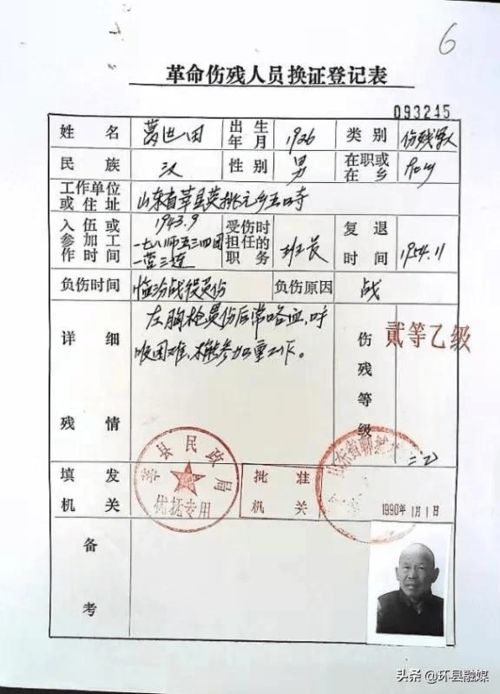 6
革命伤残人员换证登记表
093245
姓名 葛世田 出生年月 1926 类别 伤残军人
民族 汉 性别 男 在职或在乡
工作单位或住址 山东省莘县
入伍或参加工作时间 1943.9 一七八师五三四团一营三连 受伤时担任的职务 班长 复退时间 1954.11
负伤时间 临汾战役负伤 负伤原因 战
详细残情 左胸枪负伤后常咯血,呼
吸困难,不能参加重工作。
伤残等级 贰等乙级
填发机关 莘县民政局 优抚专用 批准机关 二乙
1990年1月1日
备考
头条 @环县融媒